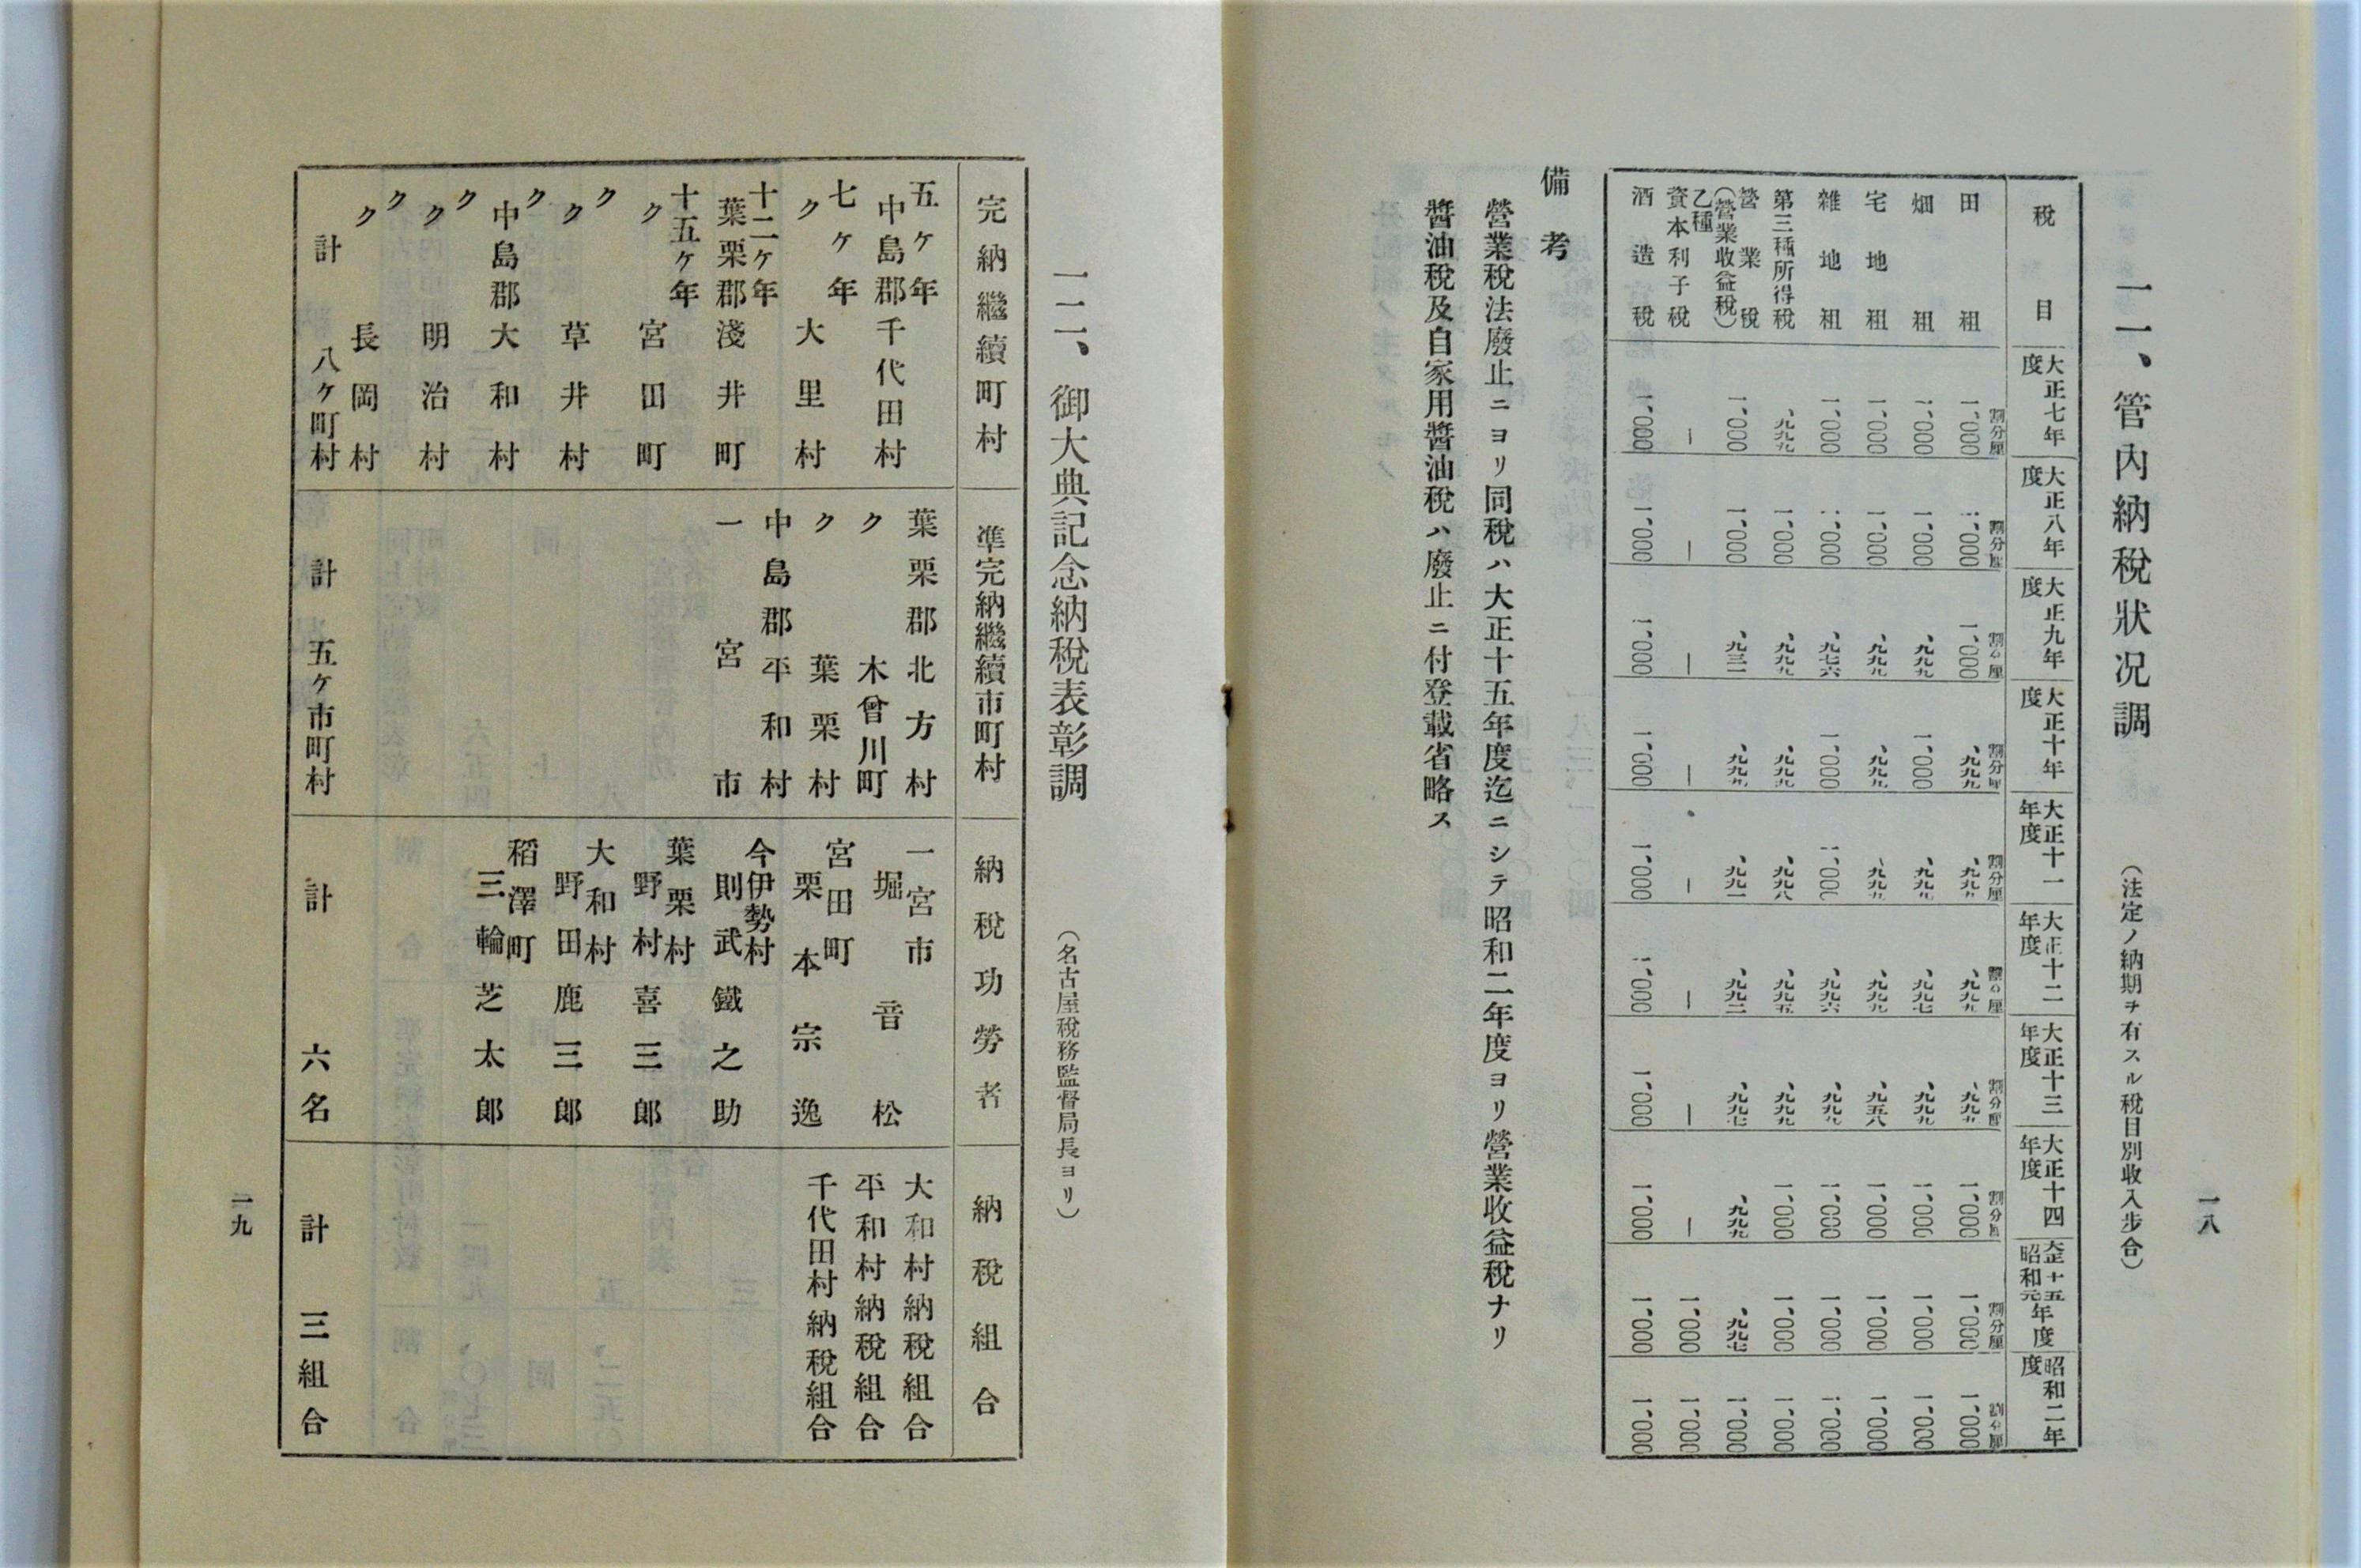 一八
一一、管內納稅狀况調 （法定ノ納期ヲ有スル稅目別收入步合）
稅目 大正七年度 大正八年度 大正九年度 大正十年度 大正十一年度 大正十二年度 大正十三年度 大正十四年度 大正十五昭和元年度 昭和二年度
割分厘 割分厘 割分厘 割分厘 割分厘 割分厘 割分厘 割分厘 割分厘 割分厘
田租 一、〇〇〇 一、〇〇〇 一、〇〇〇 、九九九 、九九九 、九九九 、九九九 一、〇〇〇 一、〇〇〇 一、〇〇〇
畑租 一、〇〇〇 一、〇〇〇 、九九九 一、〇〇〇 、九九九 、九九七 、九九九 一、〇〇〇 一、〇〇〇 一、〇〇〇
宅地租 一、〇〇〇 一、〇〇〇 、九九九 、九九九 、九九九 、九九九 、九五八 一、〇〇〇 一、〇〇〇 一、〇〇〇
雜地租 一、〇〇〇 一、〇〇〇 、九七六 一、〇〇〇 一、〇〇〇 、九九六 、九九九 一、〇〇〇 一、〇〇〇 一、〇〇〇
第三種所得稅 、九九九 一、〇〇〇 、九九九 、九九九 、九九八 、九九五 、九九九 一、〇〇〇 一、〇〇〇 一、〇〇〇
營業稅（營業收益稅） 一、〇〇〇 一、〇〇〇 、九九九 、九九一 、九九二 、九九七 、九九九 、九九七 一、〇〇〇
乙種資本利子稅 ― ― ― ― ― ― ― ― 一、〇〇〇 一、〇〇〇
酒造稅 一、〇〇〇 一、〇〇〇 一、〇〇〇 一、〇〇〇 一、〇〇〇 一、〇〇〇 一、〇〇〇 一、〇〇〇 一、〇〇〇 一、〇〇〇
備考
營業稅法廢止ニヨリ同稅ハ大正十五年度迄ニシテ昭和二年度ヨリ營業收益稅ナリ
醬油稅及自家用醬油稅ハ廢止ニ付登載省略ス
一二、御大典記念納稅表彰調 （名古屋稅務監督局長ヨリ）
完納繼續町村
五ヶ年
中島郡千代田村
七ヶ年
〃 大里村
十二ヶ年
葉栗郡淺井町
十五ヶ年
〃 宮田町
〃
〃 草井村
〃
中島郡大和村
〃
〃 明治村
〃
〃 長岡村
計 八ヶ町村
準完納繼續市町村
葉栗郡北方村
〃 木曾川町
〃 葉栗村
中島郡平和村
一宮市
計 五ヶ市町村
納稅功勞者
一宮市
堀音松
宮田町
栗本宗逸
今伊勢村
則武鐵之助
葉栗村
野村喜三郎
大和村
野田鹿三郎
稻澤町
三輪芝太郎
計 六名
納稅組合
大和村納稅組合
平和村納稅組合
千代田村納稅組合
計 三組合
一九